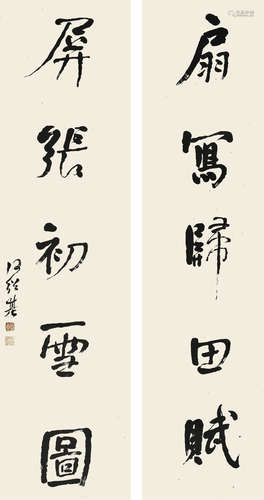 扇寫歸田賦
屏張初雪圖
何紹基